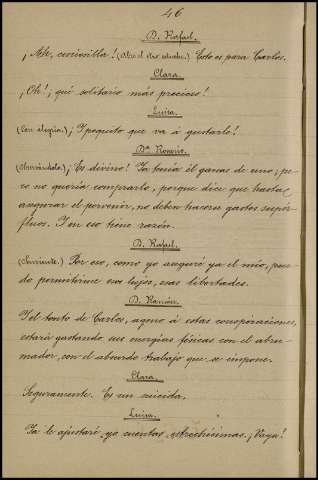 46
D. Rafael.
¡Ah, curiosilla! (Abre el otro estuche.) Esto es para Carlos.
Clara.
¡Oh!, ¡qué solitario más precioso!
Luisa.
(Con alegría.) ¡Poquito que va á gustarle!
Dª Ramón.
(Observándolo.) ¡Es divino! Ya tenía él ganas de uno; pe-
ro no quería comprarlo, porque dice que hasta
asegurar el porvenir, no deben hacerse gastos supér-
fluos. Y en eso tiene razón.
D. Rafael.
(Sonriente.) Por eso, como yo aseguré ya el mío, pue-
do permitirme esos lujos, esas libertades.
D. Ramón.
Y el tonto de Carlos, ageno á estas conspiraciones,
estará gastando sus energías físicas con el abru-
mador, con el absurdo trabajo que se impone.
Clara.
Seguramente. Es un suicida.
Luisa.
Ya le ajustaré yo cuentas estrechísimas. ¡Vaya!